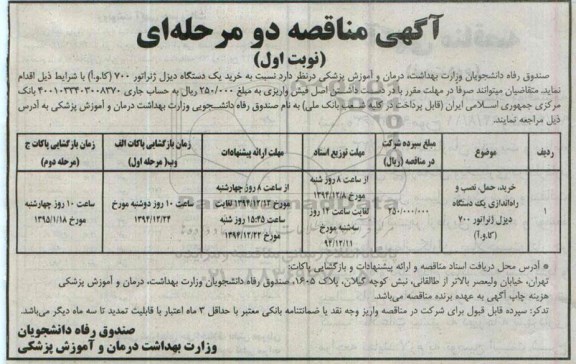 آگهی مناقصه دو مرحله‌ای
(نوبت اول)
صندوق رفاه دانشجویان وزارت بهداشت، درمان و آموزش پزشکی درنظر دارد نسبت به خرید یک دستگاه دیزل ژنراتور ۷۰۰ (کا.و.آ) با شرایط ذیل اقدام
نماید. متقاضیان میتوانند صرفاً در مهلت مقرر با در دست داشتن اصل فیش واریزی به مبلغ ۲۵۰/۰۰۰ ریال به حساب جاری ۴۰۰۱۰۳۳۴۰۳۰۰۸۳۷۰ بانک
مرکزی جمهوری اسلامی ایران (قابل پرداخت در کلیه شعب بانک ملی) به نام صندوق رفاه دانشجویی وزارت بهداشت درمان و آموزش پزشکی به آدرس
ذیل مراجعه نمایند.
ردیف
موضوع
مبلغ سپرده شرکت
در مناقصه (ریال)
مهلت توزیع اسناد
مهلت ارائه پیشنهادات
زمان بازگشایی پاکات الف
وب( مرحله اول)
زمان بازگشایی پاکات ج
(مرحله دوم)
۱
خرید، حمل، نصب و
راه‌اندازی یک دستگاه
دیزل ژنراتور ۷۰۰
(کا.و.آ)
۲۵۰/۰۰۰/۰۰۰
از ساعت ۸ روز شنبه
مورخ ۱۳۹۴/۱۲/۸
لغایت ساعت ۱۴ روز
سه‌شنبه مورخ
۹۴/۱۲/۱۱
از ساعت ۸ روز چهارشنبه
مورخ ۱۳۹۴/۱۲/۱۲ لغایت
ساعت ۱۵:۴۵ روز شنبه
مورخ ۱۳۹۴/۱۲/۲۲
ساعت ۱۰ روز دوشنبه مورخ
۱۳۹۴/۱۲/۲۴
ساعت ۱۰ روز چهارشنبه
مورخ ۱۳۹۵/۱/۱۸
* آدرس محل دریافت اسناد مناقصه و ارائه پیشنهادات و بازگشایی پاکات:
تهران، خیابان ولیعصر بالاتر از طالقانی، نبش کوچه گیلان، پلاک ۱۶۰۵، صندوق رفاه دانشجویان وزارت بهداشت، درمان و آموزش پزشکی
هزینه چاپ آگهی به عهده برنده مناقصه می‌باشد.
تذکر: سپرده قابل قبول برای شرکت در مناقصه واریز وجه نقد یا ضمانتنامه بانکی معتبر با حداقل ۳ ماه اعتبار با قابلیت تمدید تا سه ماه دیگر می‌باشد.
صندوق رفاه دانشجویان
وزارت بهداشت درمان و آموزش پزشکی